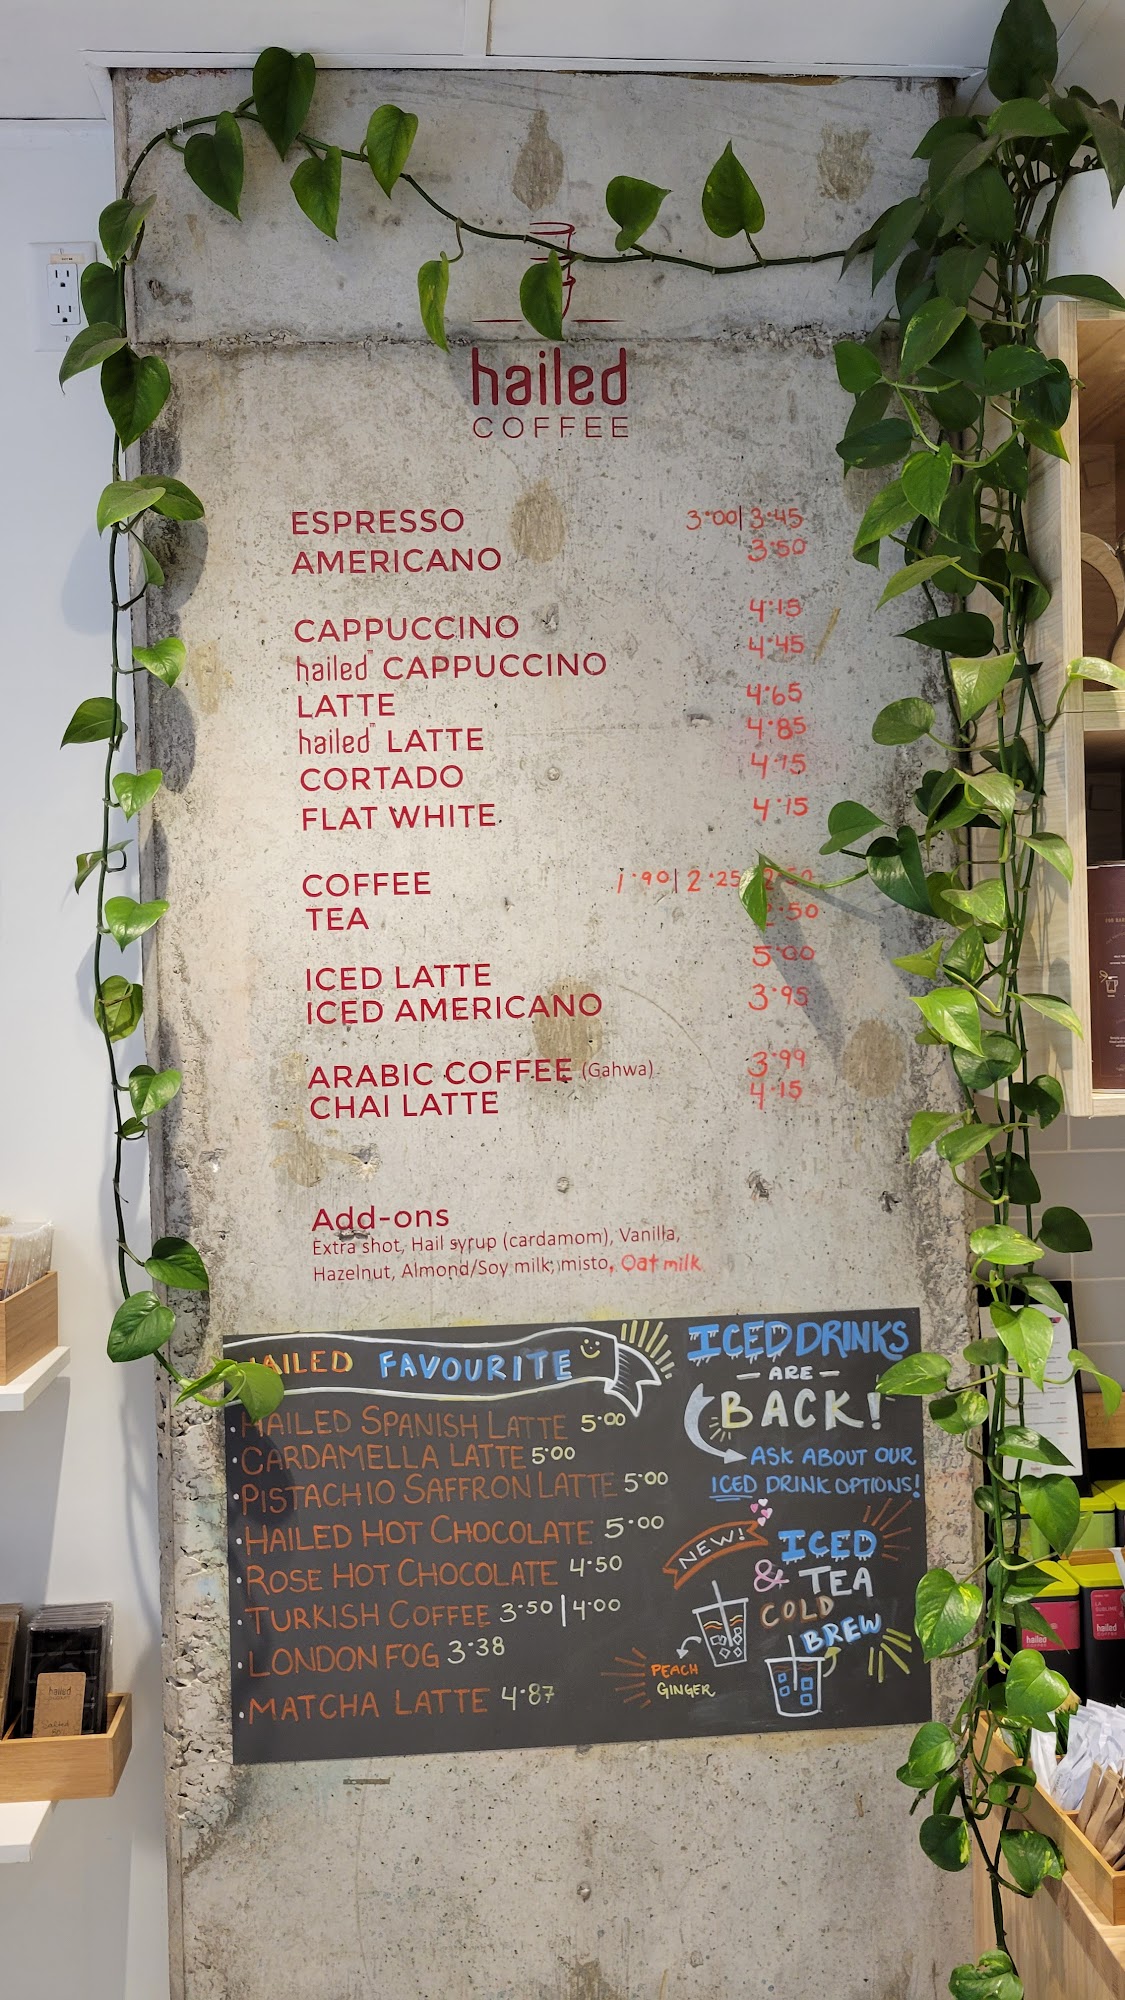 hailed
COFFEE
ESPRESSO 3.00|3.45
AMERICANO 3.50
CAPPUCCINO 4.15
hailed™ CAPPUCCINO 4.45
LATTE 4.65
hailed™ LATTE 4.85
CORTADO 4.15
FLAT WHITE 4.15
COFFEE 1.90|2.25
TEA 2.50
ICED LATTE 5.00
ICED AMERICANO 3.95
ARABIC COFFEE (Gahwa) 3.99
CHAI LATTE 4.15
Add-ons
Extra shot, Hail syrup (cardamom), Vanilla,
Hazelnut, Almond/Soy milk, misto, Oat milk
HAILED FAVOURITE
• HAILED SPANISH LATTE 5.00
• CARDAMELLA LATTE 5.00
• PISTACHIO SAFFRON LATTE 5.00
• HAILED HOT CHOCOLATE 5.00
• ROSE HOT CHOCOLATE 4.50
• TURKISH COFFEE 3.50|4.00
• LONDON FOG 3.38
• MATCHA LATTE 4.87
ICED DRINKS
— ARE —
BACK!
ASK ABOUT OUR
ICED DRINK OPTIONS!
NEW!
ICED
& TEA
COLD
BREW
PEACH
GINGER
hailed
Salted
hailed
LA
SUBLIME
hailed